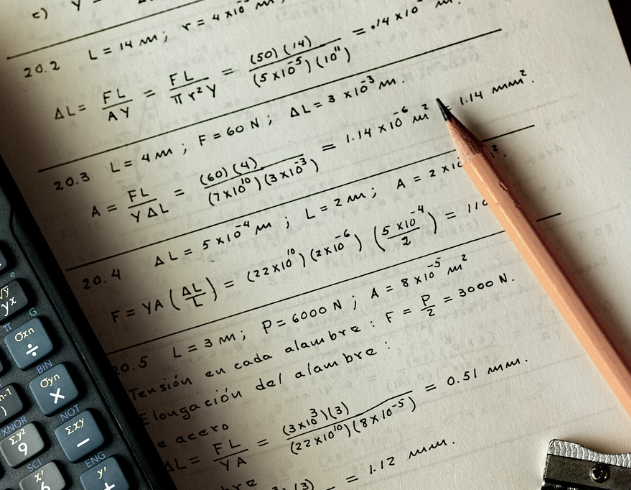 c)
20.2 L = 14 m ; r = 4 x 10
ΔL = FL/AY = FL/πr²Y = (50)(14)/(5x10⁻⁵)(10¹¹) = .14 x 10
20.3 L = 4 m ; F = 60 N ; ΔL = 3 x10⁻³ m.
A = FL/YΔL = (60)(4)/(7x10¹⁰)(3x10⁻³) = 1.14 x10⁻⁶ m² = 1.14 mm².
20.4 ΔL = 5 x10⁻⁴ m ; L = 2 m ; A = 2 x
F = YA (ΔL/L) = (22x10¹⁰)(2x10⁻⁶) (5 x10⁻⁴/2) = 110
20.5 L = 3 m ; P = 6000 N ; A = 8 x10⁻⁵ m²
Tensión en cada alambre : F = P/2 = 3000 N.
Elongación del alambre :
acero
ΔL = FL/YA = (3x10³)(3)/(22x10¹⁰)(8x10⁻⁵) = 0.51 mm.
= 1.12 mm.
yx
Oxn
÷
BIN
Oxn
×
XNOR
Σy²
9
NOT
Σxy
−
ENG
+